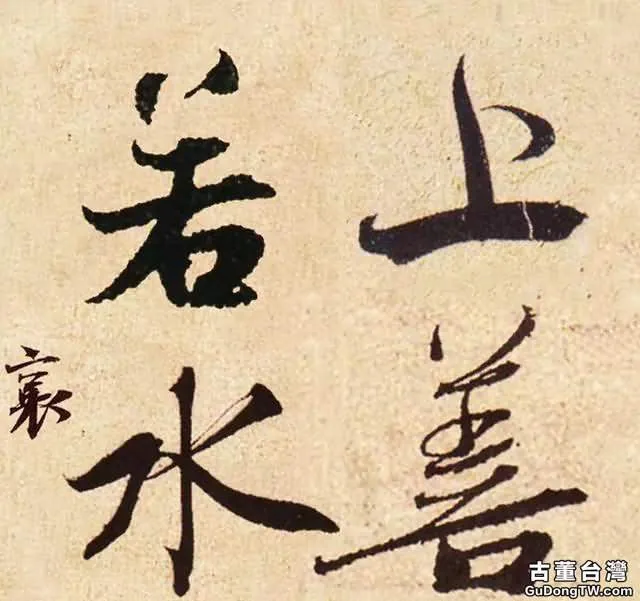 上善
若水
襄
古董台灣
GuDongTW.com